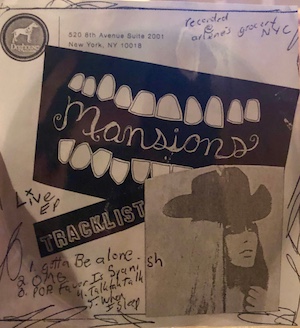 Doghouse
520 8th Avenue Suite 2001
New York, NY 10018
recorded
@
arlene's grocery
NYC
Mansions
Live
EP
TRACKLIST
1. gotta Be alone
2. OMG
3. POR Favor Is Spanish
4. Talk Talk Talk
5. When
I Sleep